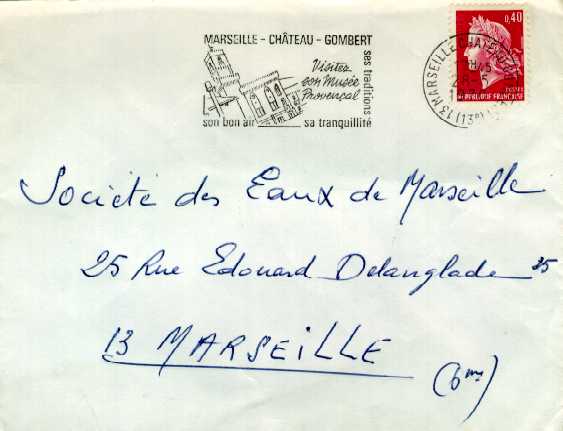 MARSEILLE - CHÂTEAU - GOMBERT
Visitez
son Musée
Provençal
ses traditions
son bon air
sa tranquillité
0,40
RÉPUBLIQUE FRANÇAISE
13 MARSEILLE
(13e)
Société des Eaux de Marseille
25 Rue Edouard Delanglade 25
13 MARSEILLE
(6me)